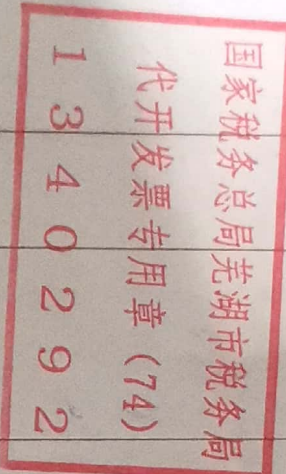 国家税务总局芜湖市税务局
代开发票专用章(74)
1340292